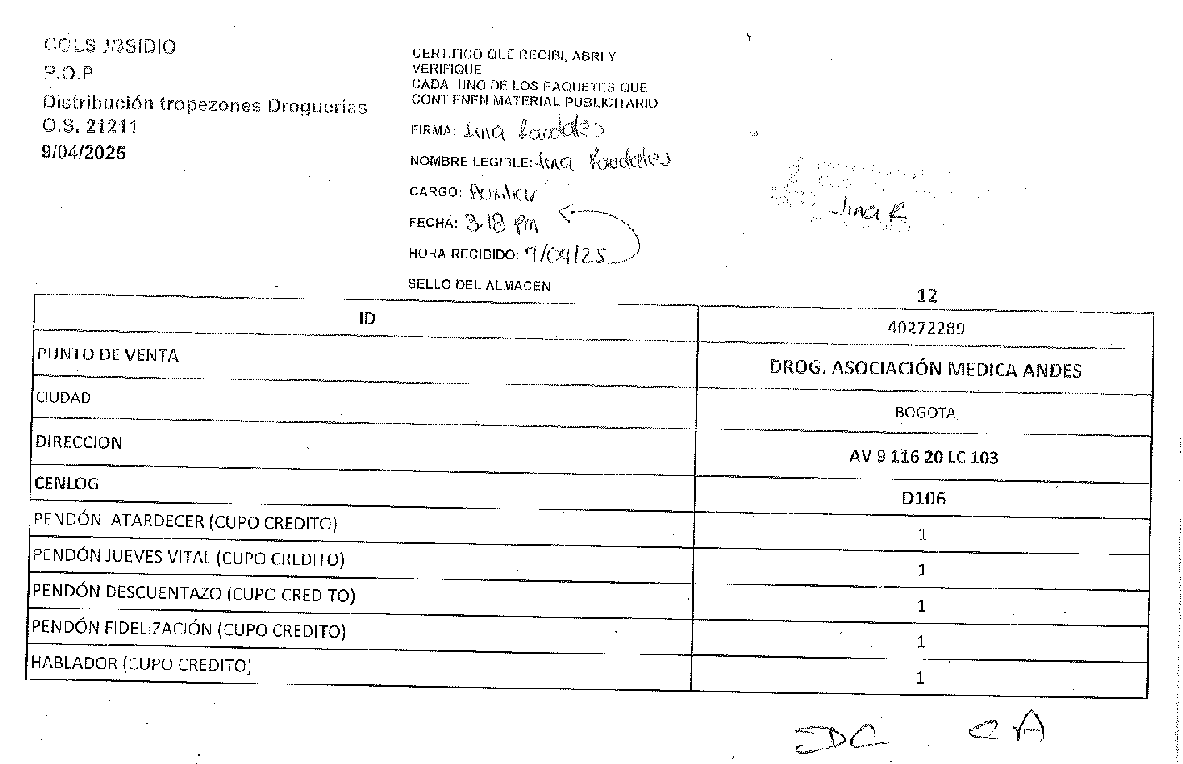 COLSUBSIDIO
P.O.P
Distribución tropezones Droguerias
O.S. 21211
9/04/2025
CERTIFICO QUE RECIBI, ABRI Y
VERIFIQUE
CADA UNO DE LOS PAQUETES QUE
CONTIENEN MATERIAL PUBLICITARIO
FIRMA: Lina
NOMBRE LEGIBLE: Lina
CARGO:
FECHA: 3:18 pm
HORA RECIBIDO: 9/04/25
SELLO DEL ALMACEN
Lina R
12
ID 40272289
PUNTO DE VENTA DROG. ASOCIACIÓN MEDICA ANDES
CIUDAD BOGOTA
DIRECCION AV 9 116 20 LC 103
CENLOG D106
PENDÓN ATARDECER (CUPO CREDITO) 1
PENDÓN JUEVES VITAL (CUPO CREDITO) 1
PENDÓN DESCUENTAZO (CUPO CREDITO) 1
PENDÓN FIDELIZACIÓN (CUPO CREDITO) 1
HABLADOR (CUPO CREDITO) 1